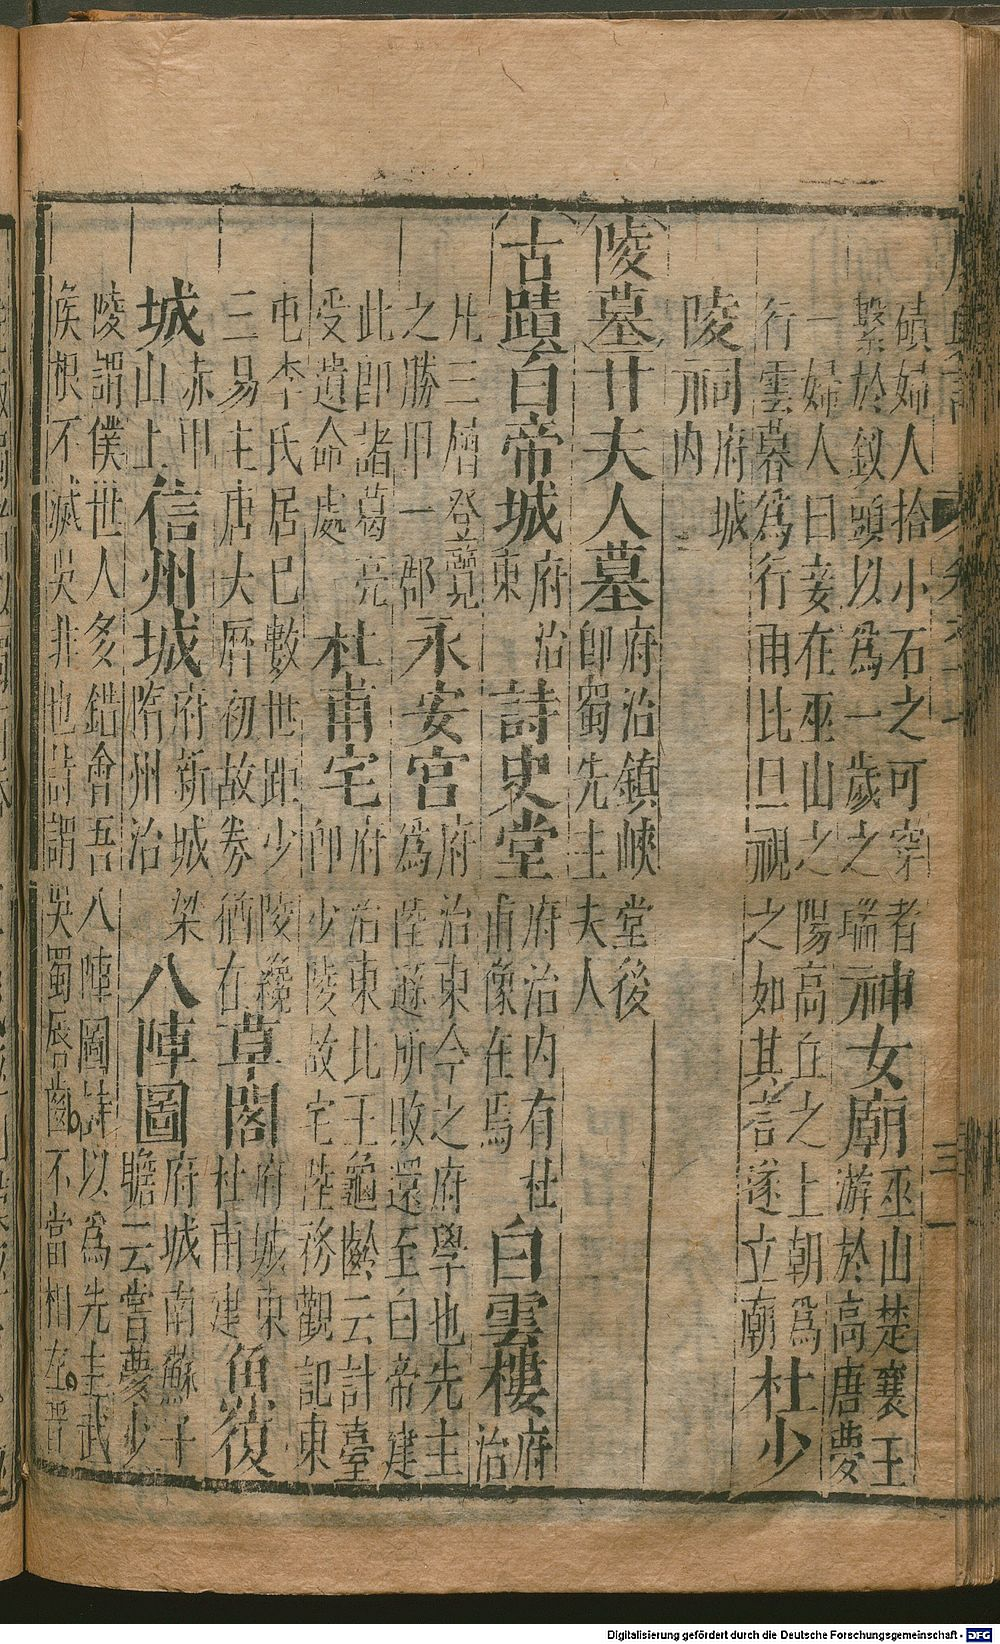 磧婦人拾小石之可穿者
繫於釵頭以爲一歲之瑞
神女廟
巫山楚襄王
游於高唐夢
一婦人曰妾在巫山之陽高丘之上朝爲
行雲暮爲行雨比旦視之如其言遂立廟
杜少
陵祠
府城
内
陵墓
甘夫人墓
府治鎮峽堂後
卽蜀先主夫人
古蹟
白帝城
府治
東
詩史堂
府治内有杜
甫像在焉
白雲樓
府
治
凡三層登覽
之勝甲一郡
永安宮
府治東今之府學也先主
爲陸遜所敗還至白帝建
此卽諸葛亮
受遺命處
杜甫宅
府治東北王龜齡云計臺
卽少陵故宅陸務觀記東
屯李氏居已數世距少陵纔
三易主唐大曆初故券猶在
草閣
府城東
杜甫建
魚復
城
赤甲
山上
信州城
府新城梁
隋州治
八陣圖
府城南蘇子
瞻云嘗夢少
陵謂僕世人多錯會吾八陣圖詩以爲先主武
侯根不滅吳非也詩謂吳蜀唇齒不當相左晉
Digitalisierung gefördert durch die Deutsche Forschungsgemeinschaft - DFG